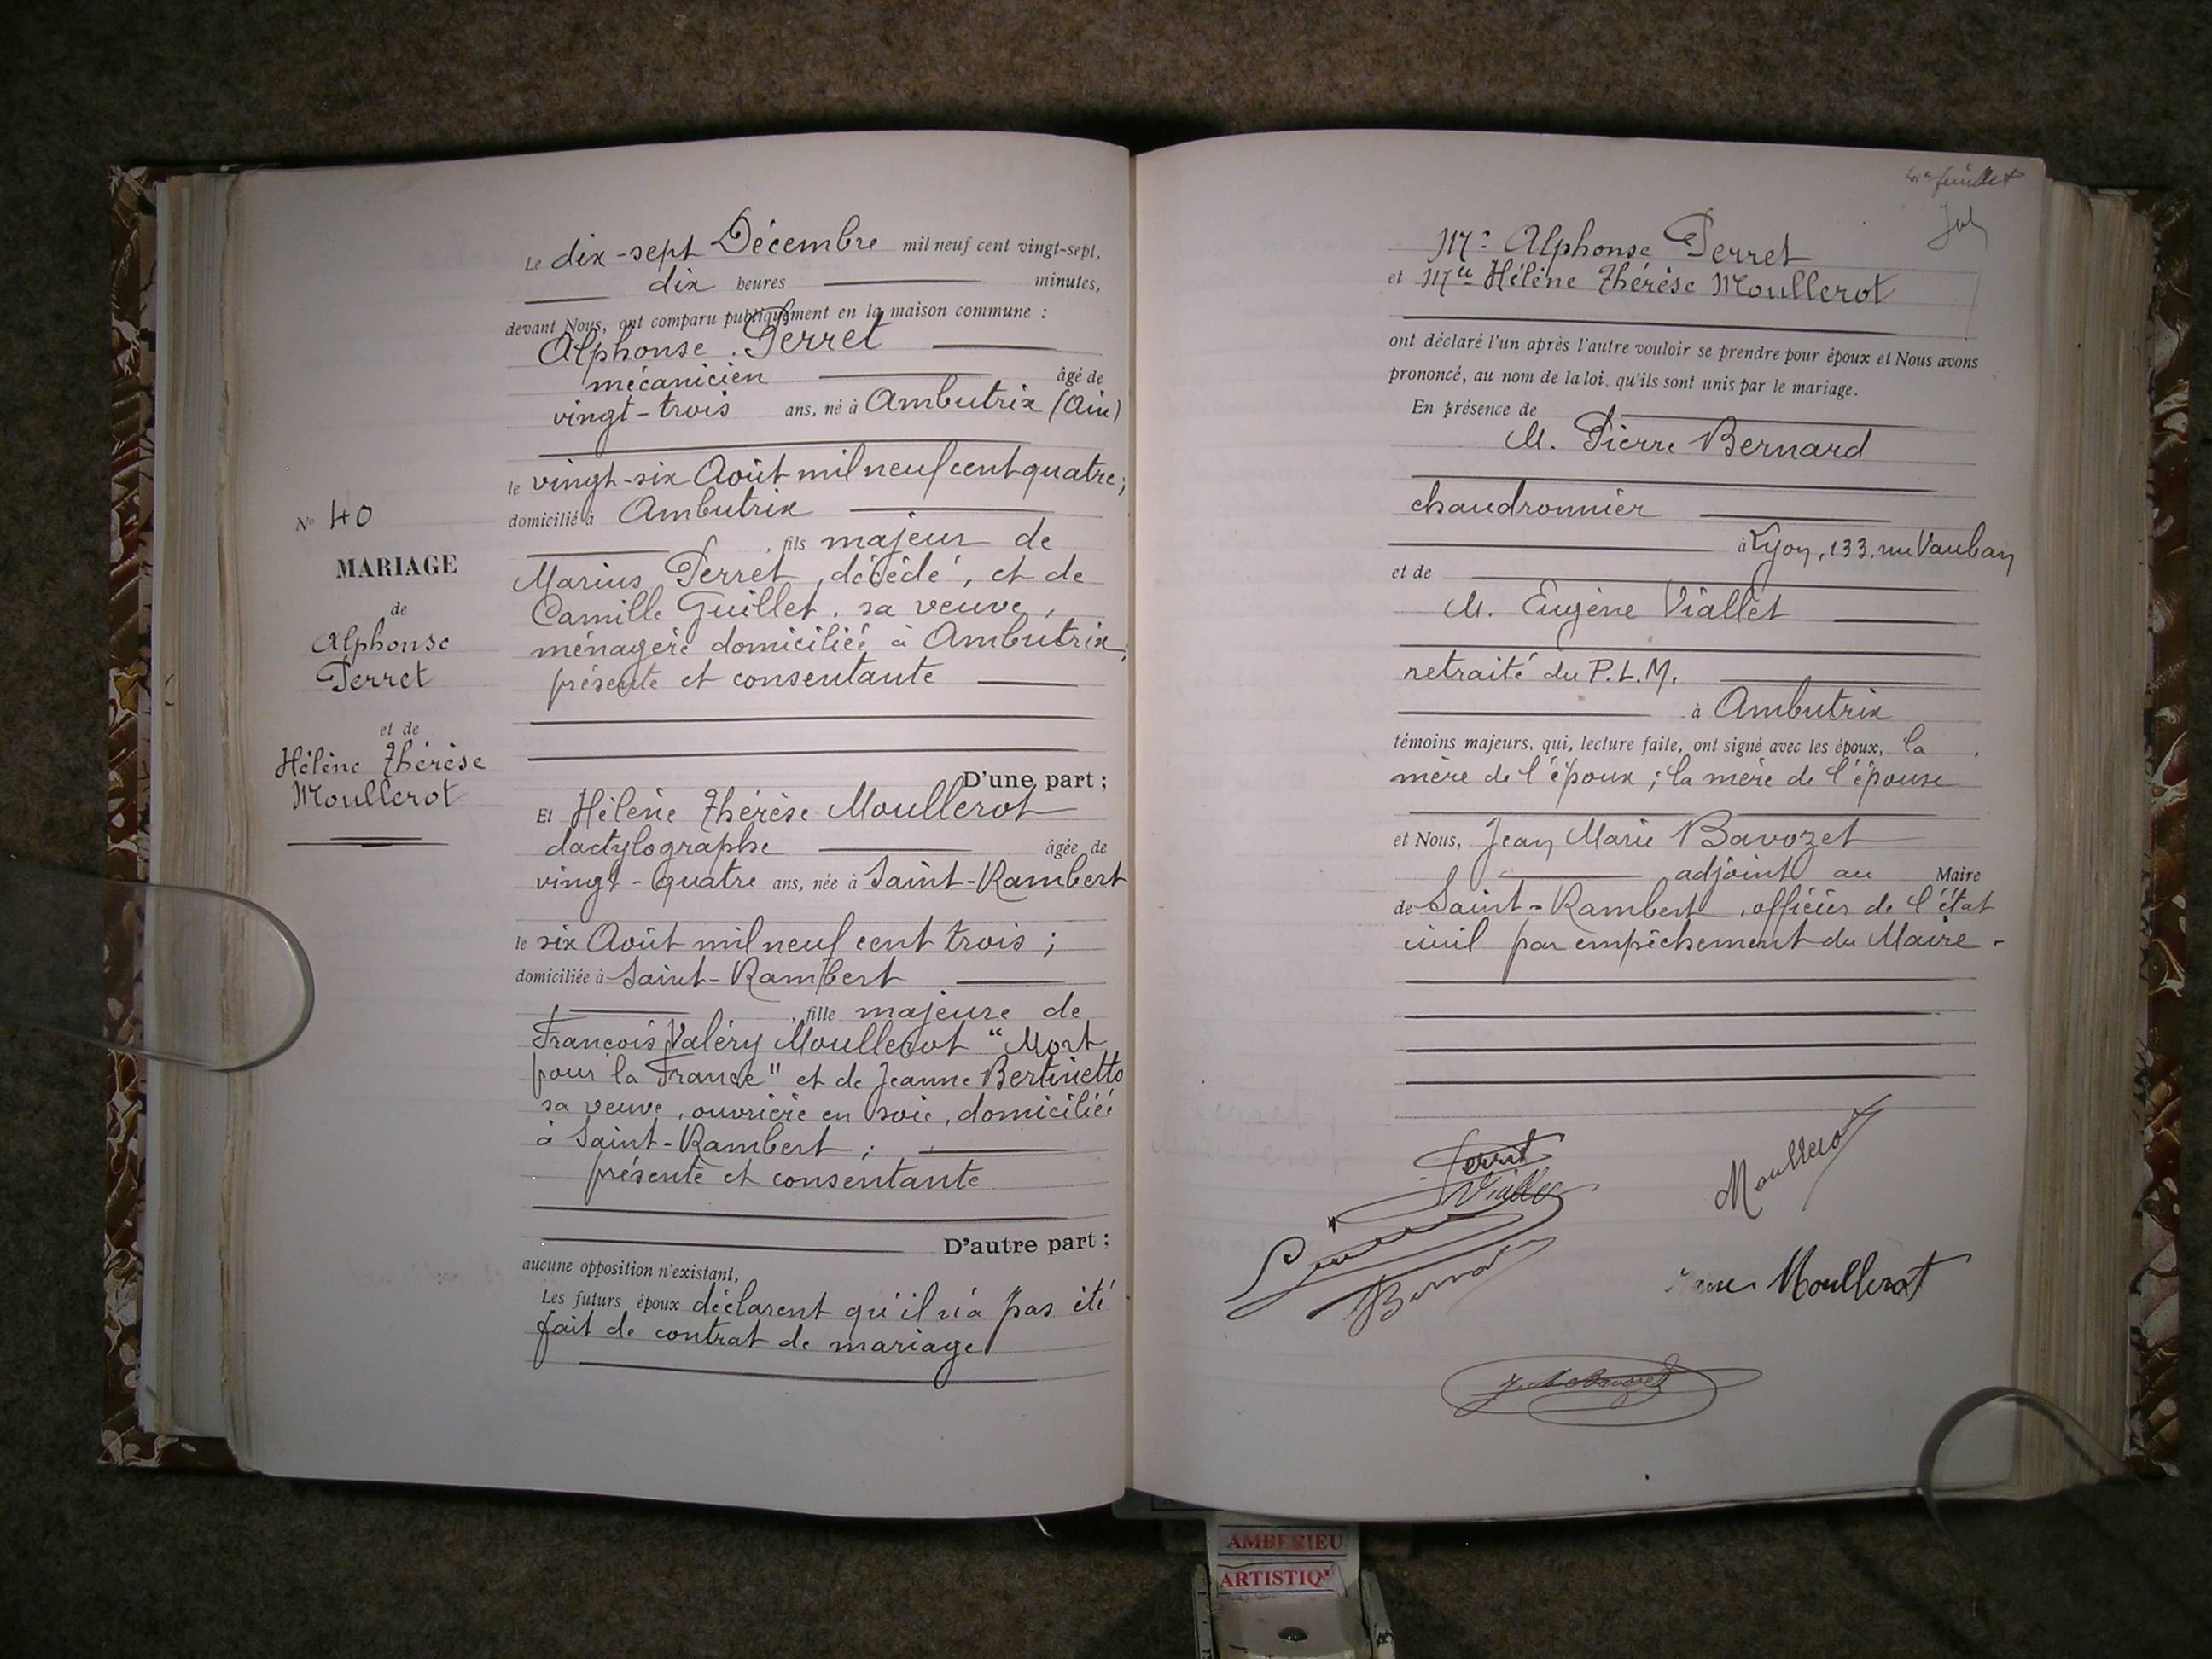 N° 40
MARIAGE
de
Alphonse
Perret
et de
Hélène Thérèse
Moullerot
Le dix-sept Décembre mil neuf cent vingt-sept,
dix heures minutes,
devant Nous, ont comparu publiquement en la maison commune :
Alphonse Perret
mécanicien âgé de
vingt-trois ans, né à Ambutrix (Ain)
le vingt-six Août mil neuf cent quatre;
domicilié à Ambutrix
, fils majeur de
Marius Perret, décédé, et de
Camille Guillet, sa veuve,
ménagère domiciliée à Ambutrix,
présente et consentante
D'une part ;
Et Hélène Thérèse Moullerot
dactylographe âgée de
vingt-quatre ans, née à Saint-Rambert
le six Août mil neuf cent trois ;
domiciliée à Saint-Rambert
, fille majeure de
François Valéry Moullerot "Mort
pour la France" et de Jeanne Bertinetto
sa veuve, ouvrière en soie, domiciliée
à Saint-Rambert ;
présente et consentante
D'autre part ;
aucune opposition n'existant,
Les futurs époux déclarent qu'il n'a pas été
fait de contrat de mariage
feuillet
Mr Alphonse Perret
et Mlle Hélène Thérèse Moullerot
ont déclaré l'un après l'autre vouloir se prendre pour époux et Nous avons
prononcé, au nom de la loi, qu'ils sont unis par le mariage.
En présence de
M. Pierre Bernard
chaudronnier
à Lyon, 133, rue Vauban
et de
M. Eugène Viallet
retraité du P.L.M.
à Ambutrix
témoins majeurs, qui, lecture faite, ont signé avec les époux, la
mère de l'époux ; la mère de l'épouse
et Nous, Jean Marie Bavozet
adjoint au Maire
de Saint-Rambert, officier de l'état
civil par empêchement du Maire -
Perret
Moullerot
Viallet
Moullerot
AMBERIEU
ARTISTIQ